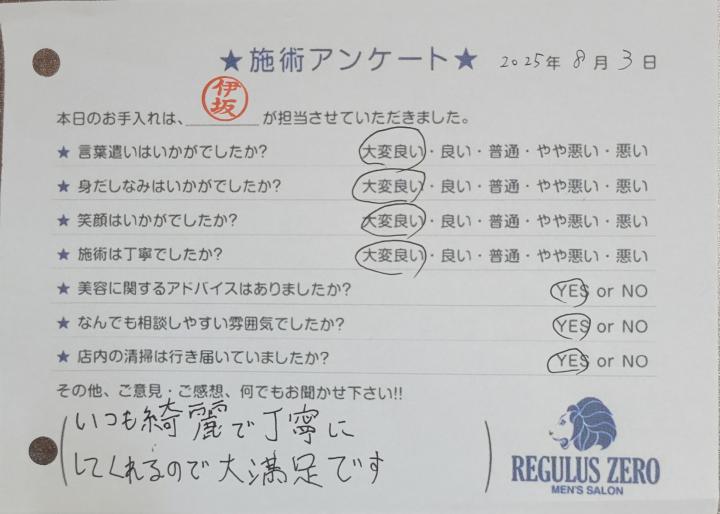 ★施術アンケート★ 2025年 8月 3日
本日のお手入れは、伊坂が担当させていただきました。
★ 言葉遣いはいかがでしたか? 大変良い・良い・普通・やや悪い・悪い
★ 身だしなみはいかがでしたか? 大変良い・良い・普通・やや悪い・悪い
★ 笑顔はいかがでしたか? 大変良い・良い・普通・やや悪い・悪い
★ 施術は丁寧でしたか? 大変良い・良い・普通・やや悪い・悪い
★ 美容に関するアドバイスはありましたか? YES or NO
★ なんでも相談しやすい雰囲気でしたか? YES or NO
★ 店内の清掃は行き届いていましたか? YES or NO
その他、ご意見・ご感想、何でもお聞かせ下さい!!
いつも綺麗で丁寧に
してくれるので大満足です
REGULUS ZERO
MEN'S SALON